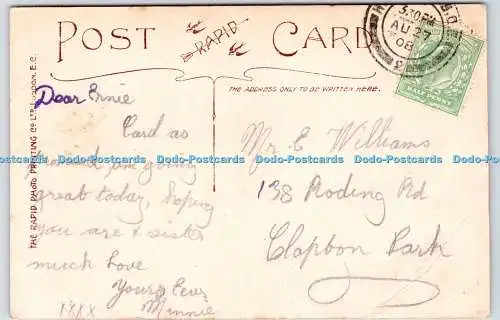 POST CARD
RAPID
THE ADDRESS ONLY TO BE WRITTEN HERE.
THE RAPID PHOTO PRINTING Co LTD, LONDON, E.C.
3.30 PM
AU 27
08
HALFPENNY
Dear Ernie
Card as
promised am going
great today, hoping
you are & sister
much love
Yours Ever
Minnie
xxxx
Mr E Williams
138 Roding Rd
Clapton Park
Dodo-Postcards Dodo-Postcards Dodo-Postcards Dodo-Postcards Dodo-Postcards Dodo-Postcards